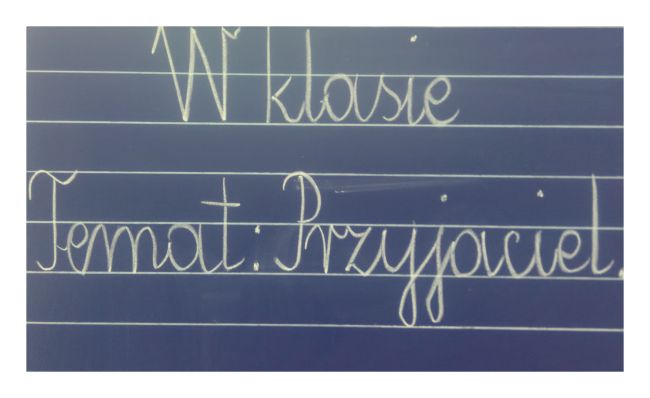 W klasie
Temat: Przyjaciel.